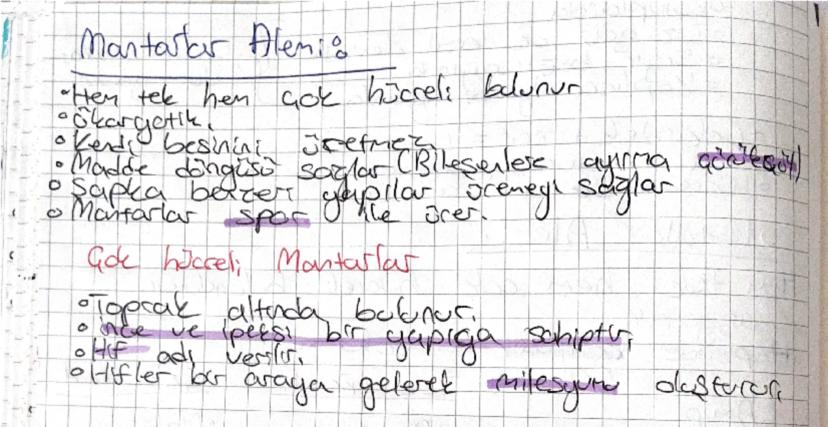 Mantarlar Alemi:
• Hem tek hem çok hücreli bulunur
• Ökaryotik.
• Kendi besinini üretmez
• Madde döngüsü sağlar (Bileşenlere ayırma çürükçül)
• Şapka benzeri yapılar üremeyi sağlar
• Mantarlar spor ile ürer.
Çok hücreli Mantarlar
• Toprak altında bulunur.
• İnce ve ipeksi bir yapıya sahiptir.
• Hif adı verilir.
• Hifler bir araya gelerek milesyumu oluşturur.